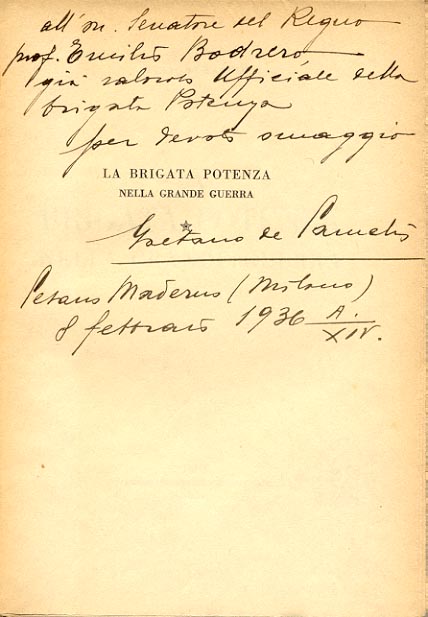 all' on. Senatore del Regno
prof. Emilio Bodrero,
già valoroso Ufficiale della
brigata Potenza
per devoto omaggio
LA BRIGATA POTENZA
NELLA GRANDE GUERRA
Gaetano de
Cesano Maderno (Milano)
8 febbraio 1936 A.
XIV.